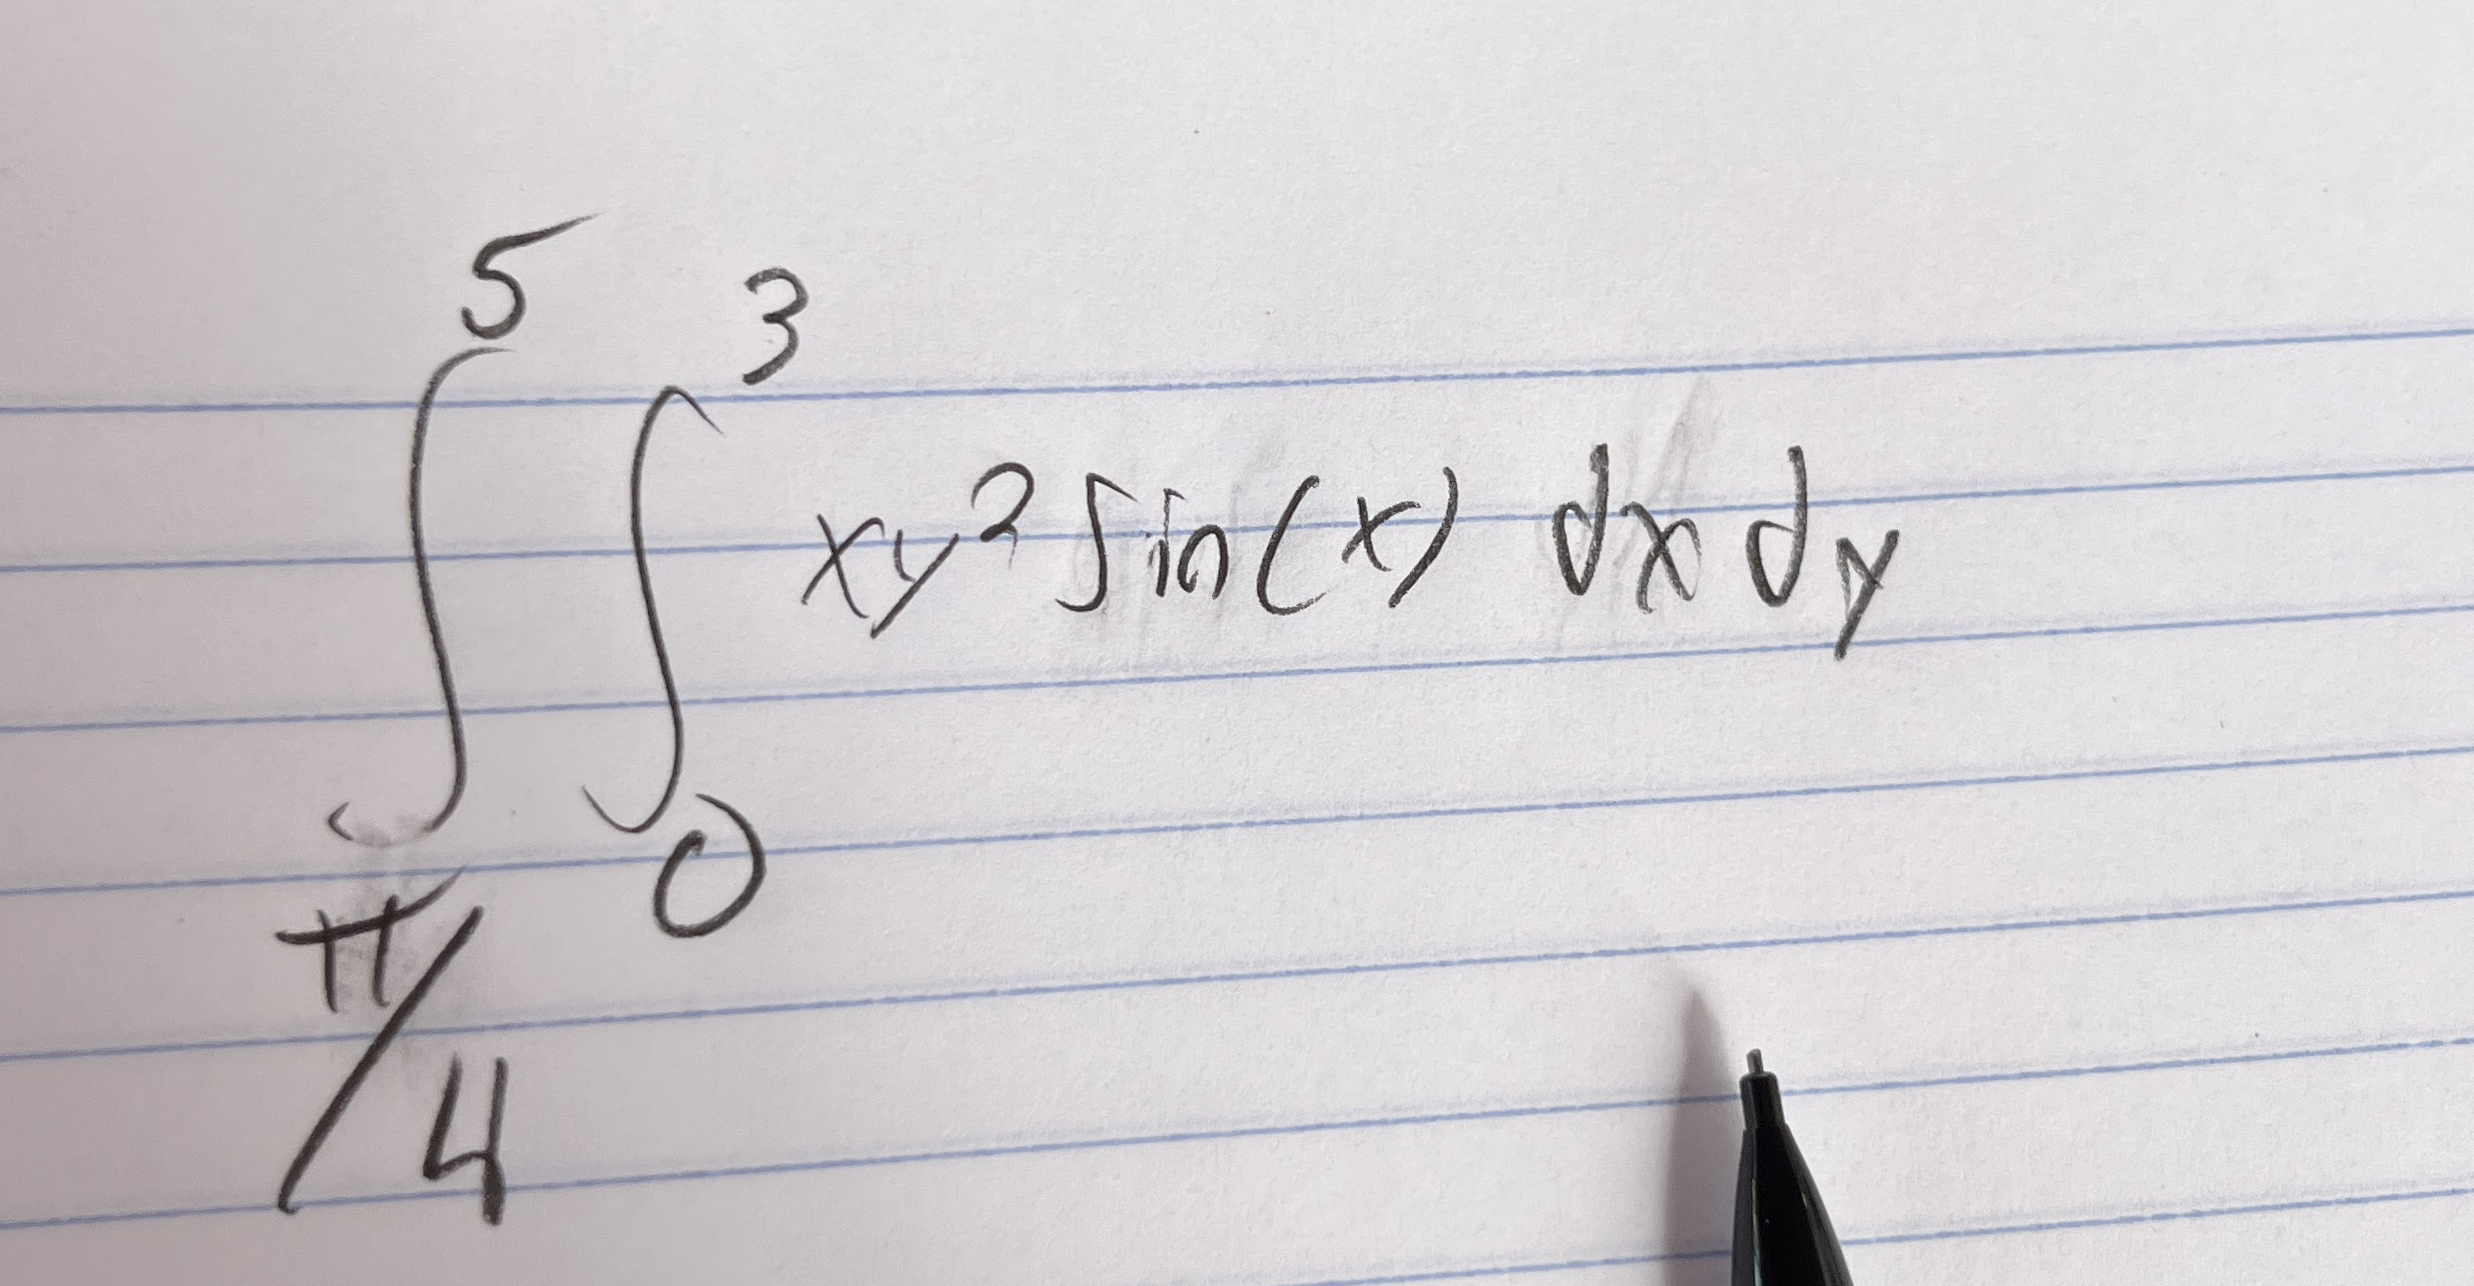 ∫_{π/4}^{5} ∫_{0}^{3} xy² sin(x) dx dy